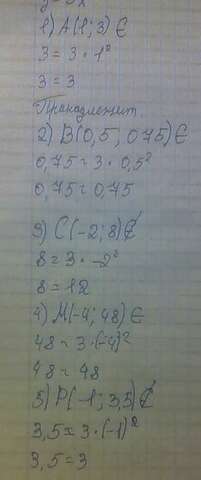 1) A(1; 3) ∈
3 = 3 · 1²
3 = 3
Принадлежит
2) B(0,5, 0,75) ∈
0,75 = 3 · 0,5²
0,75 = 0,75
3) C(-2; 8) ∉
8 = 3 · -2²
8 = 12
4) M(-4; 48) ∈
48 = 3 · (-4)²
48 = 48
5) P(-1; 3,5) ∉
3,5 = 3 · (-1)²
3,5 = 3